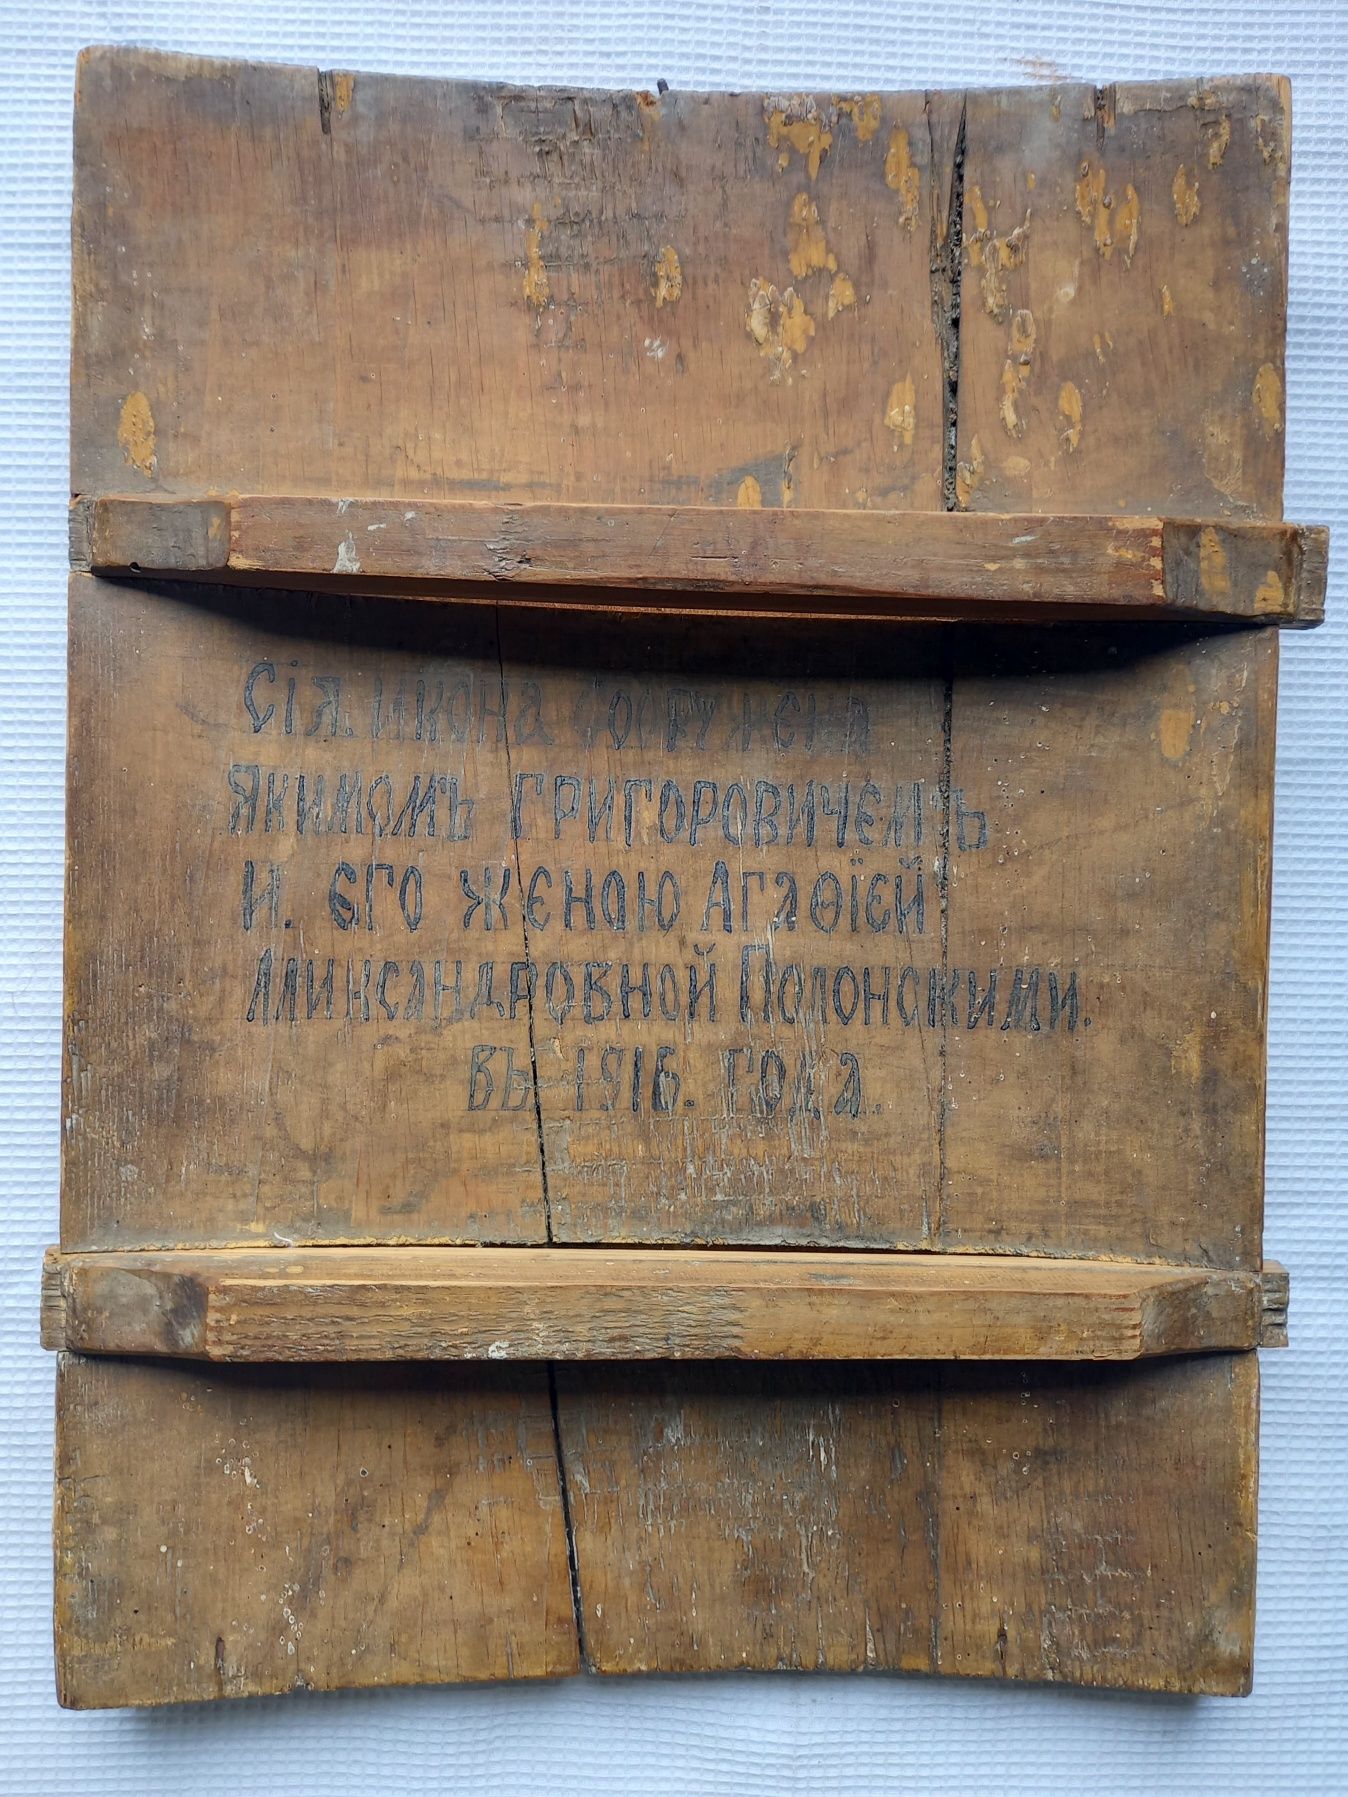 Сія. икона сооружена
Якимомъ Григоровичемъ
и. єго жєною Агаѳїєй
Аликсандровной Полонскими.
въ. 1916. года.